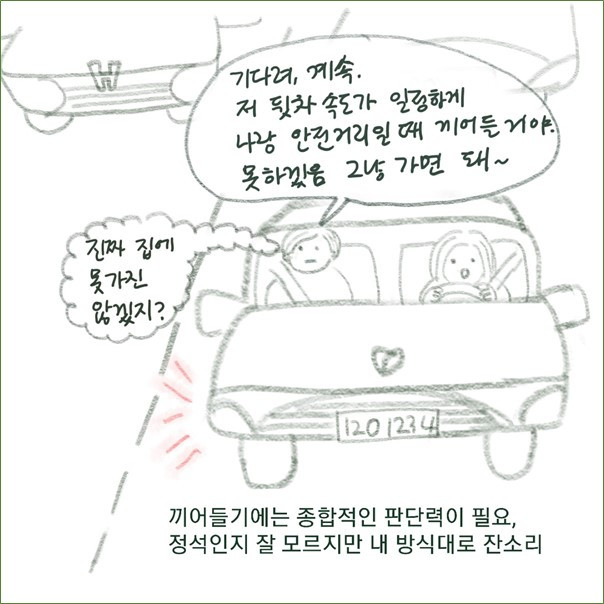 기다려, 계속.
저 뒷차 속도가 일정하게
나랑 안전거리일 때 끼어든거야.
못하겠음 그냥 가면 돼~
진짜 집에
못가진
않겠지?
H
120 1234
끼어들기에는 종합적인 판단력이 필요,
정석인지 잘 모르지만 내 방식대로 잔소리